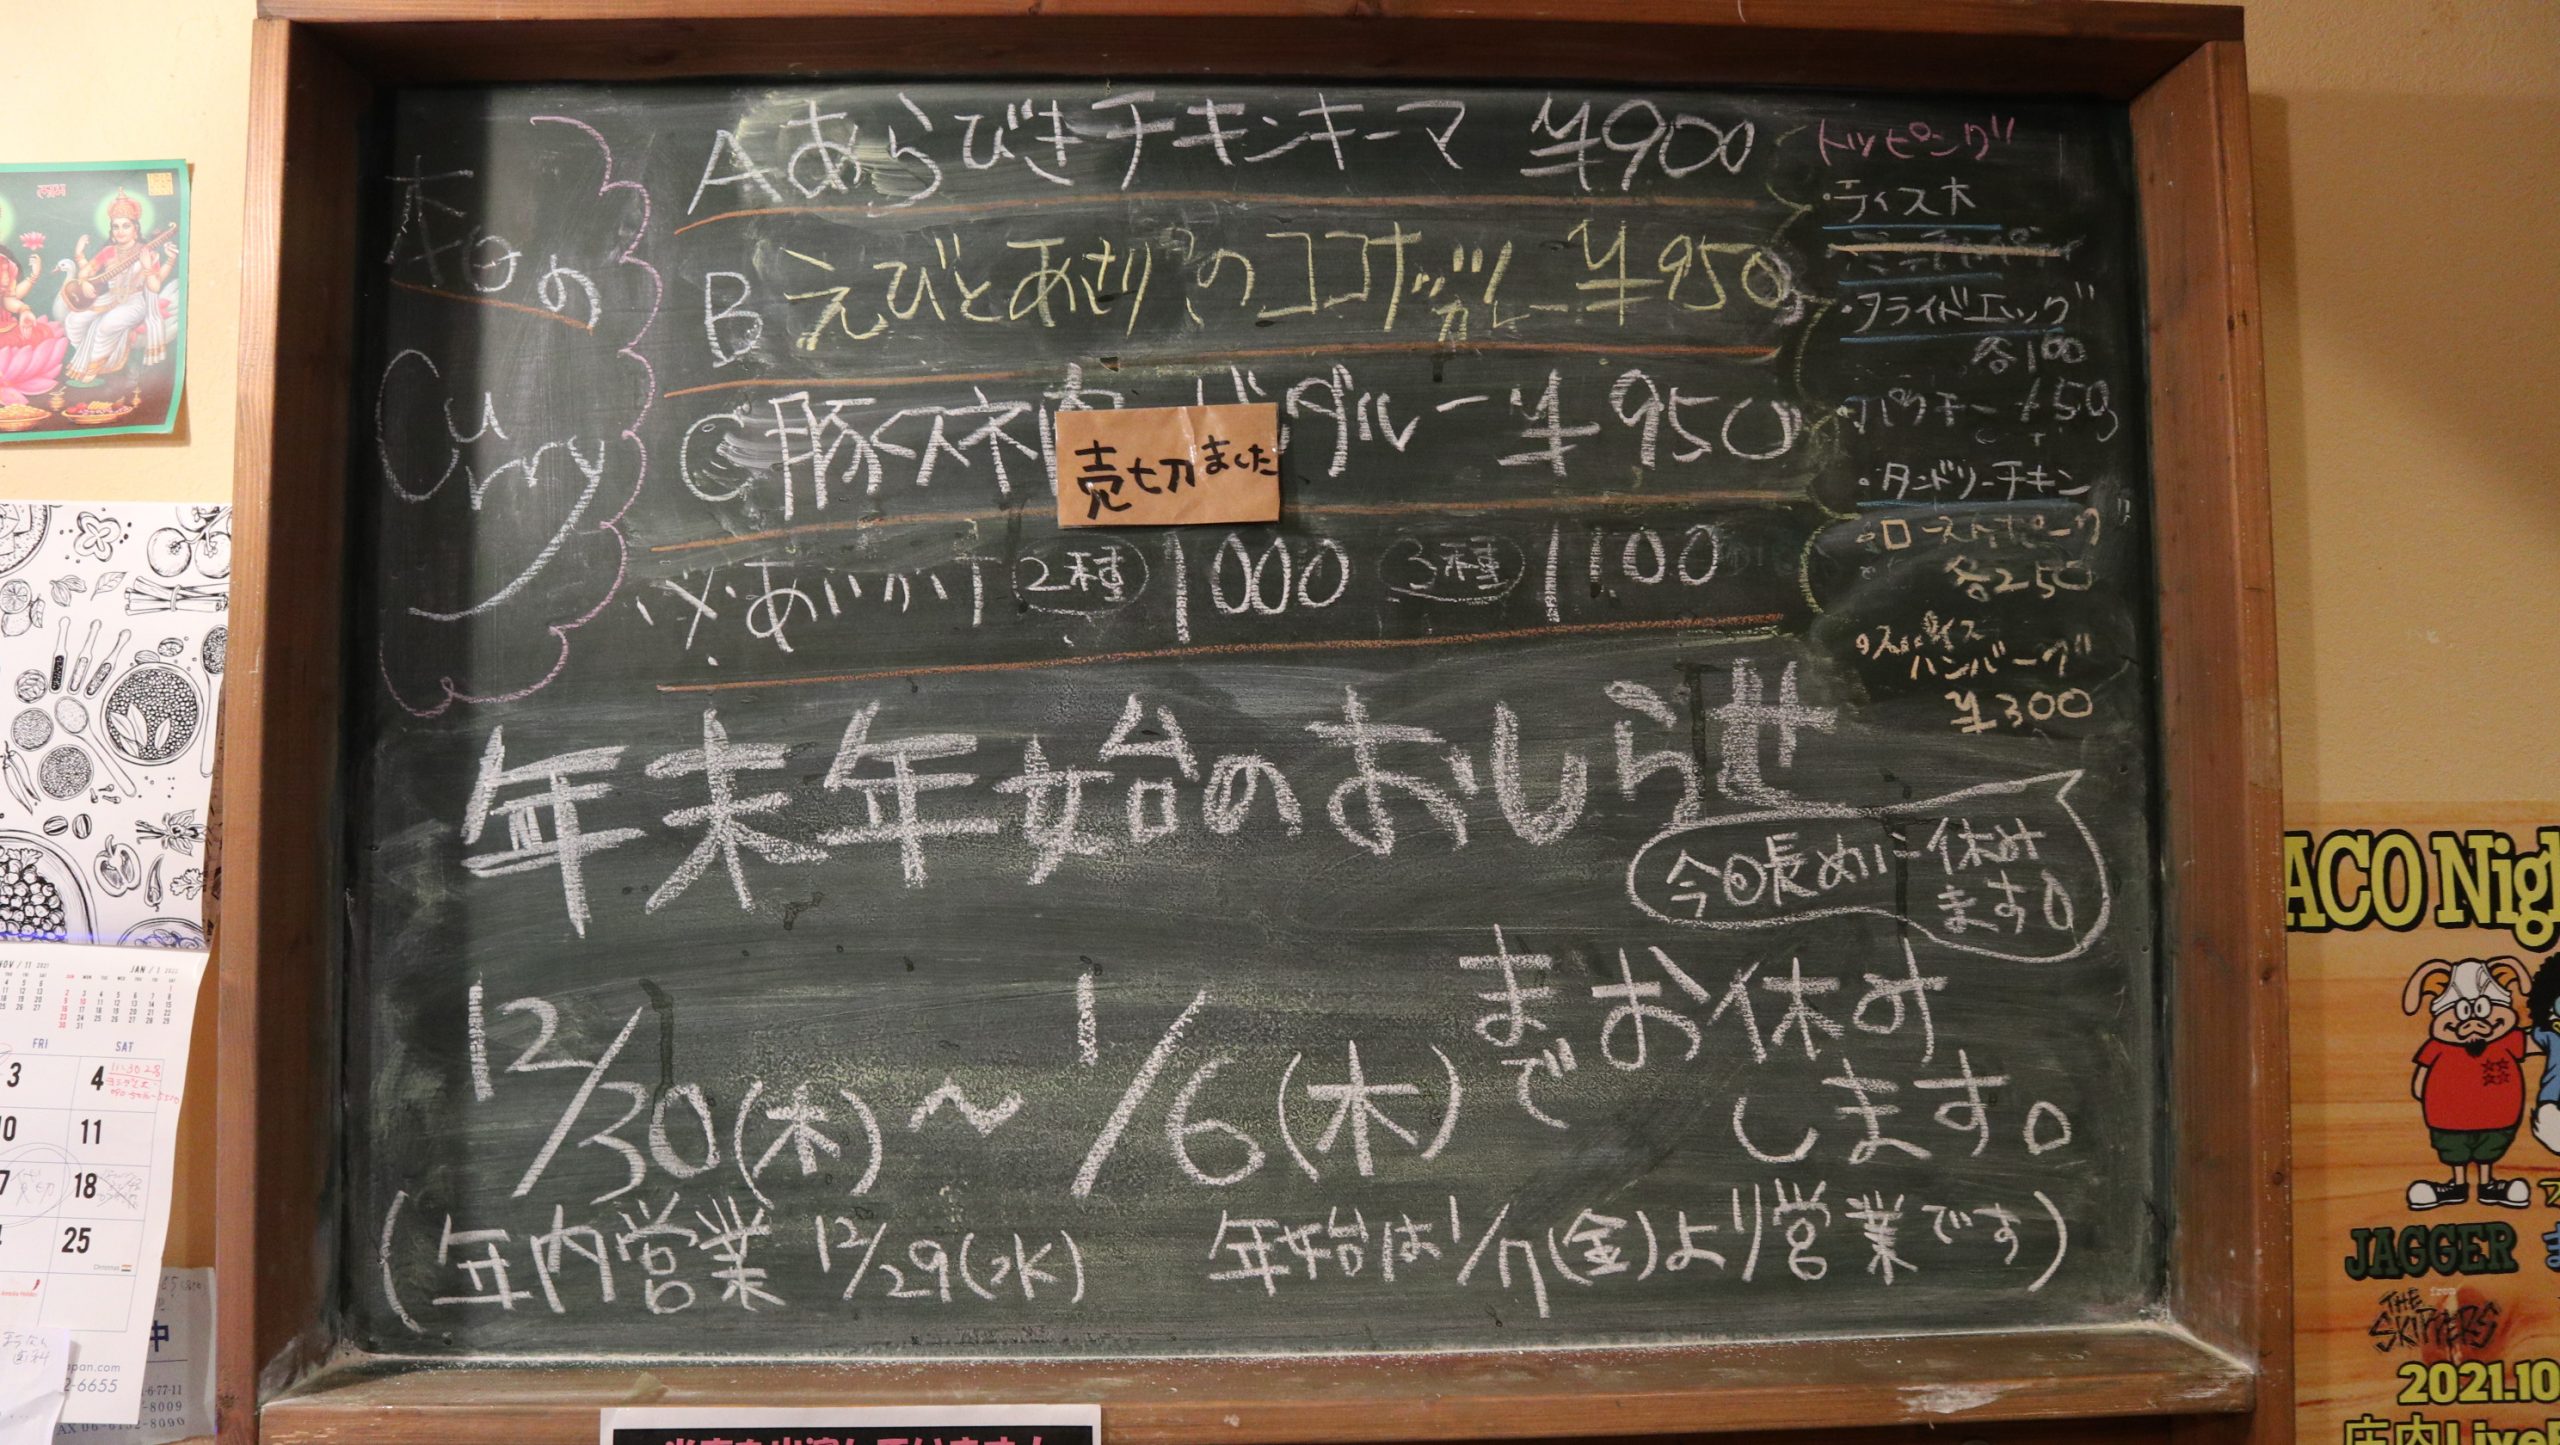 本日の
Curry
A あらびきチキンキーマ ¥900
B えびとあさりのココナッツカレー ¥950
C 豚スネ肉 バダルー ¥950
売切ました
※あいがけ 2種 1000 3種 1100
トッピング
・ライス大
・フライドエッグ
各100
・パクチー 150
・タンドリーチキン
・ローストポーク
各250
・スパイス
ハンバーグ
¥300
年末年始のおしらせ
今回長めに休み
ます。
12/30(木)〜1/6(木)まで お休み
します。
(年内営業 12/29(水) 年始は1/7(金)より営業です)
NOV / 11 2021
JAN / 1 2022
FRI
SAT
3
4
11
18
25
Christmas
apan.com
2-6655
6-77-11
8009
AX 06-6152-8090
ACO Nig
JAGGER
from
THE
SKIPPERS
2021.10
庄内Live